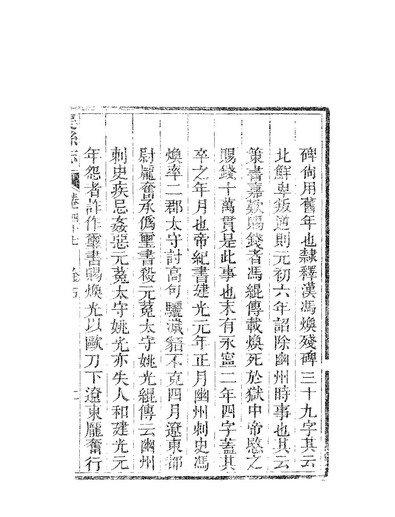 碑尚用舊年也隸釋漢馮煥殘碑三十九字其云
北鮮卑叛逆則元初六年詔除幽州時事也其云
策書嘉歎賜錢者馮緄傳載煥死於獄中帝愍之
賜錢十萬貫是此事也末有永寧二年四字蓋其
卒之年月也帝紀書建光元年正月幽州刺史馮
煥率二郡太守討高句驪濊貊不克四月遼東都
尉龐奮承僞璽書殺元菟太守姚光緄傳云幽州
刺史疾忌姦惡元菟太守姚光亦失人和建光元
年怨者詐作璽書賜煥光以歐刀下遼東龐奮行